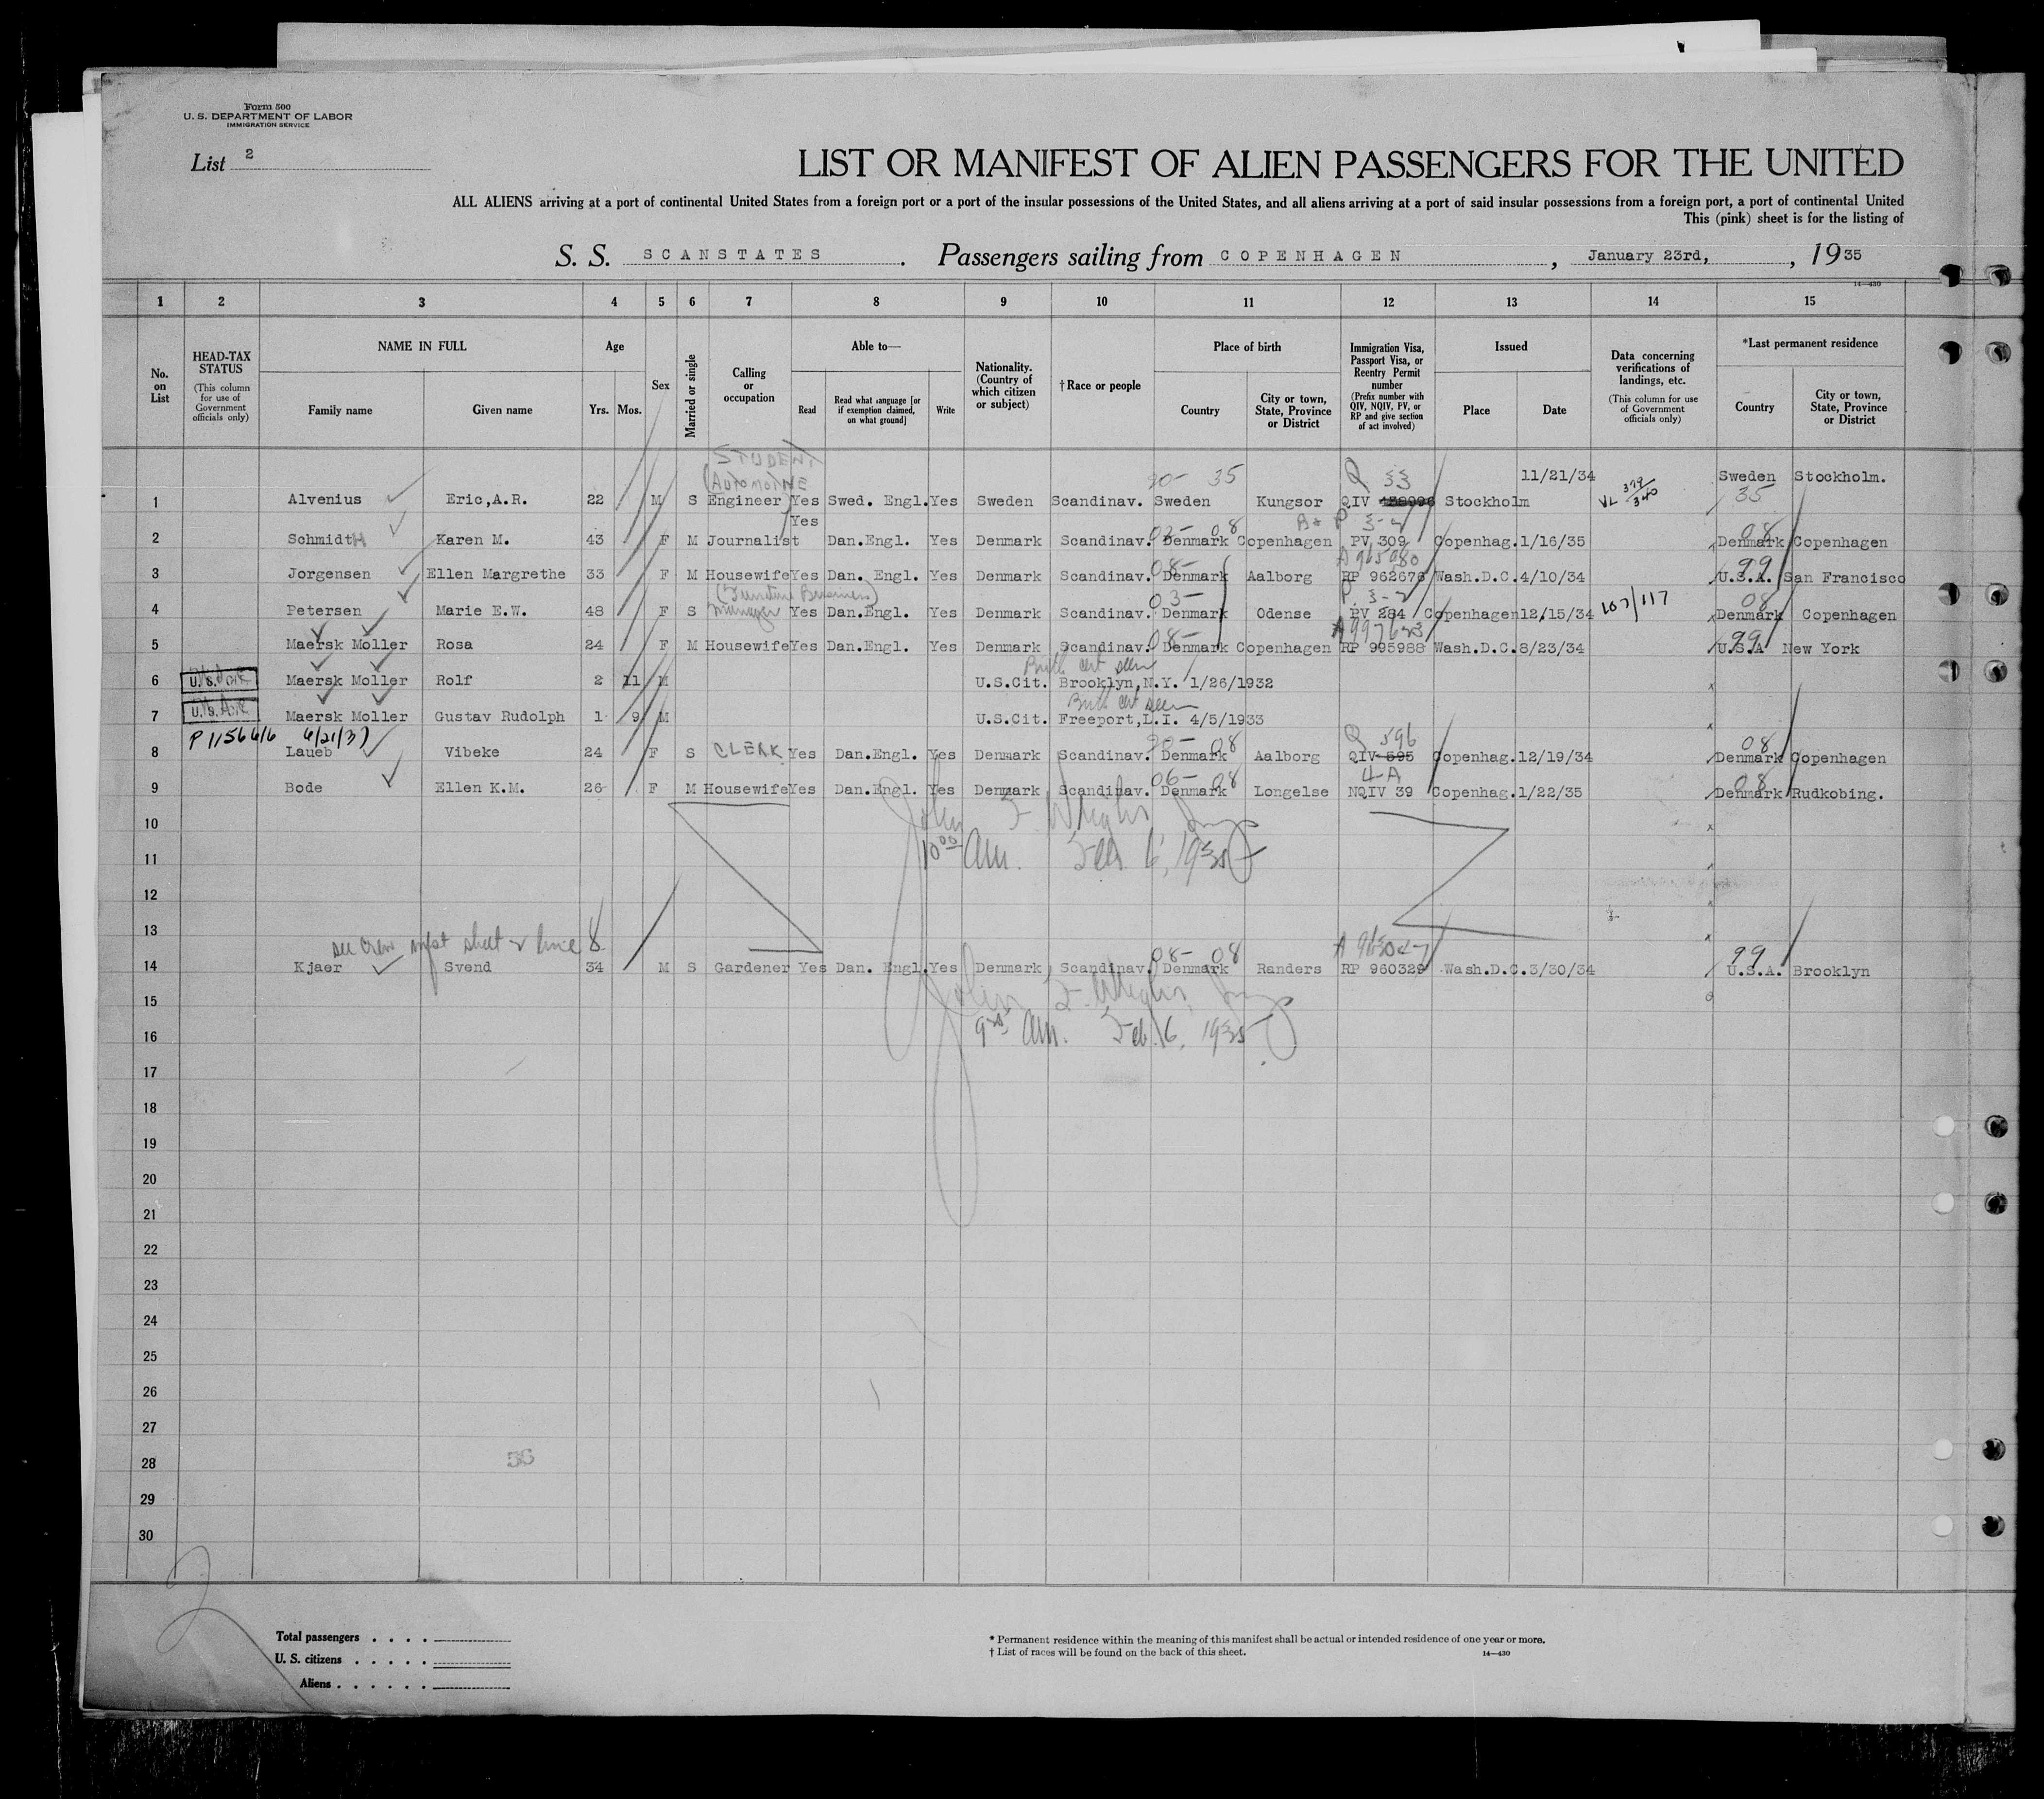 Form 500
U. S. DEPARTMENT OF LABOR
IMMIGRATION SERVICE
List 2
LIST OR MANIFEST OF ALIEN PASSENGERS FOR THE UNITED
ALL ALIENS arriving at a port of continental United States from a foreign port or a port of the insular possessions of the United States, and all aliens arriving at a port of said insular possessions from a foreign port, a port of continental United
This (pink) sheet is for the listing of
S. S. SCANSTATES. Passengers sailing from COPENHAGEN, January 23rd, , 1935
14—430
1 2 3 4 5 6 7 8 9 10 11 12 13 14 15
No. on List
HEAD-TAX STATUS (This column for use of Government officials only)
NAME IN FULL
Family name Given name
Age
Yrs. Mos.
Sex
Married or single
Calling or occupation
Able to—
Read Read what language [or if exemption claimed, on what ground] Write
Nationality. (Country of which citizen or subject)
†Race or people
Place of birth
Country City or town, State, Province or District
Immigration Visa, Passport Visa, or Reentry Permit number (Prefix number with QIV, NQIV, PV, or RP and give section of act involved)
Issued
Place Date
Data concerning verifications of landings, etc. (This column for use of Government officials only)
*Last permanent residence
Country City or town, State, Province or District
STUDENT
(AUTOMOTIVE 35 Q 33 11/21/34 Sweden Stockholm.
1 Alvenius Eric,A.R. 22 M S Engineer Yes Swed. Engl. Yes Sweden Scandinav. Sweden Kungsor QIV Stockholm VL 379/340 35
Yes P 3-2
2 SchmidtH Karen M. 43 F M Journalist Dan.Engl. Yes Denmark Scandinav. 03- 08 Denmark Copenhagen PV 309 Copenhag. 1/16/35 08 Denmark Copenhagen
A 965980
3 Jorgensen Ellen Margrethe 33 F M Housewife Yes Dan. Engl. Yes Denmark Scandinav. 08- Denmark Aalborg RP 962676 Wash.D.C. 4/10/34 99 U.S.A. San Francisco
(Furniture Business) P. 3-2
4 Petersen Marie E.W. 48 F S Manager Yes Dan.Engl. Yes Denmark Scandinav. 03- Denmark Odense PV 284 Copenhagen 12/15/34 107/117 08 Denmark Copenhagen
A 997623
5 Maersk Moller Rosa 24 F M Housewife Yes Dan.Engl. Yes Denmark Scandinav. 08- Denmark Copenhagen RP 995988 Wash.D.C. 8/23/34 99 U.S.A New York
Birth cert seen
6 Maersk Moller Rolf 2 11 M U.S.Cit. Brooklyn,N.Y. 1/26/1932
Birth cert seen
7 Maersk Moller Gustav Rudolph 1 9 M U.S.Cit. Freeport,L.I. 4/5/1933
P 1156616 6/21/37 Q 596
8 Laueb Vibeke 24 F S CLERK Yes Dan.Engl. Yes Denmark Scandinav. 08 Denmark Aalborg QIV 595 Copenhag. 12/19/34 08 Denmark Copenhagen
4-A
9 Bode Ellen K.M. 26 F M Housewife Yes Dan.Engl. Yes Denmark Scandinav. 06- 08 Denmark Longelse NQIV 39 Copenhag. 1/22/35 08 Denmark Rudkobing.
10 John F.
11 10 00 am. Feb 6, 1935
12
13
see crew mfst sheet 2 line 8 08- 08 99
14 Kjaer Svend 34 M S Gardener Yes Dan. Engl. Yes Denmark Scandinav. Denmark Randers RP 960329 Wash.D.C. 3/30/34 U.S.A. Brooklyn
15 John F.
16 am. Feb. 6, 1935
17
18
19
20
21
22
23
24
25
26
27
28
29
30
2
Total passengers
U. S. citizens
Aliens
* Permanent residence within the meaning of this manifest shall be actual or intended residence of one year or more.
† List of races will be found on the back of this sheet.
14—430